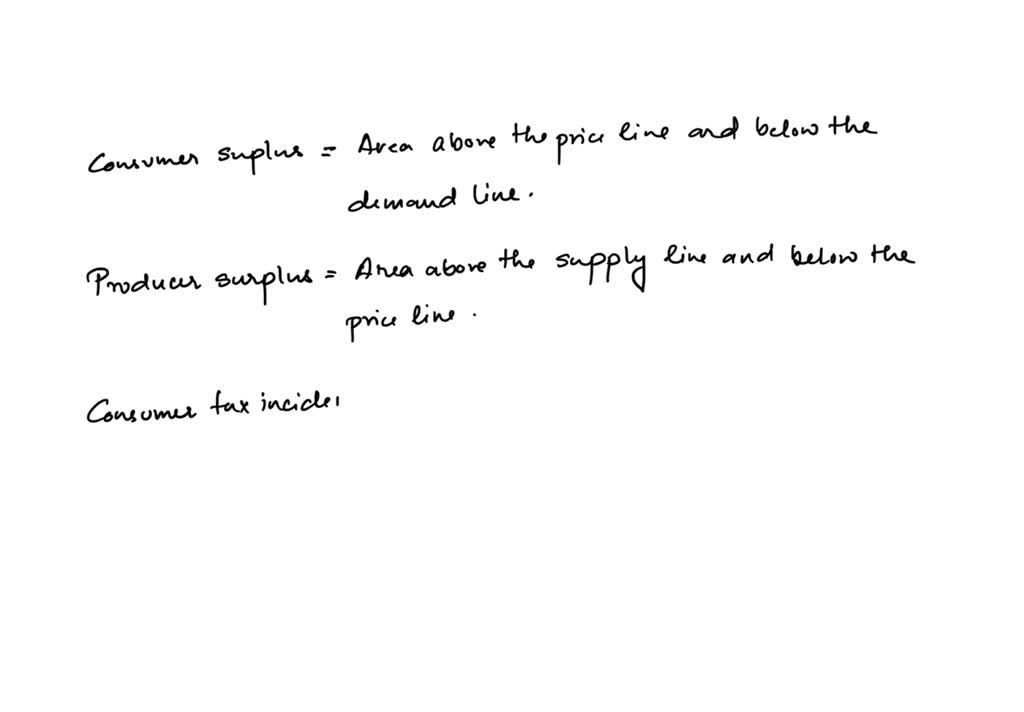 Consumer suplus = Area above the price line and below the
demand line.
Producer surplus = Area above the supply line and below the
price line.
Consumer tax incide